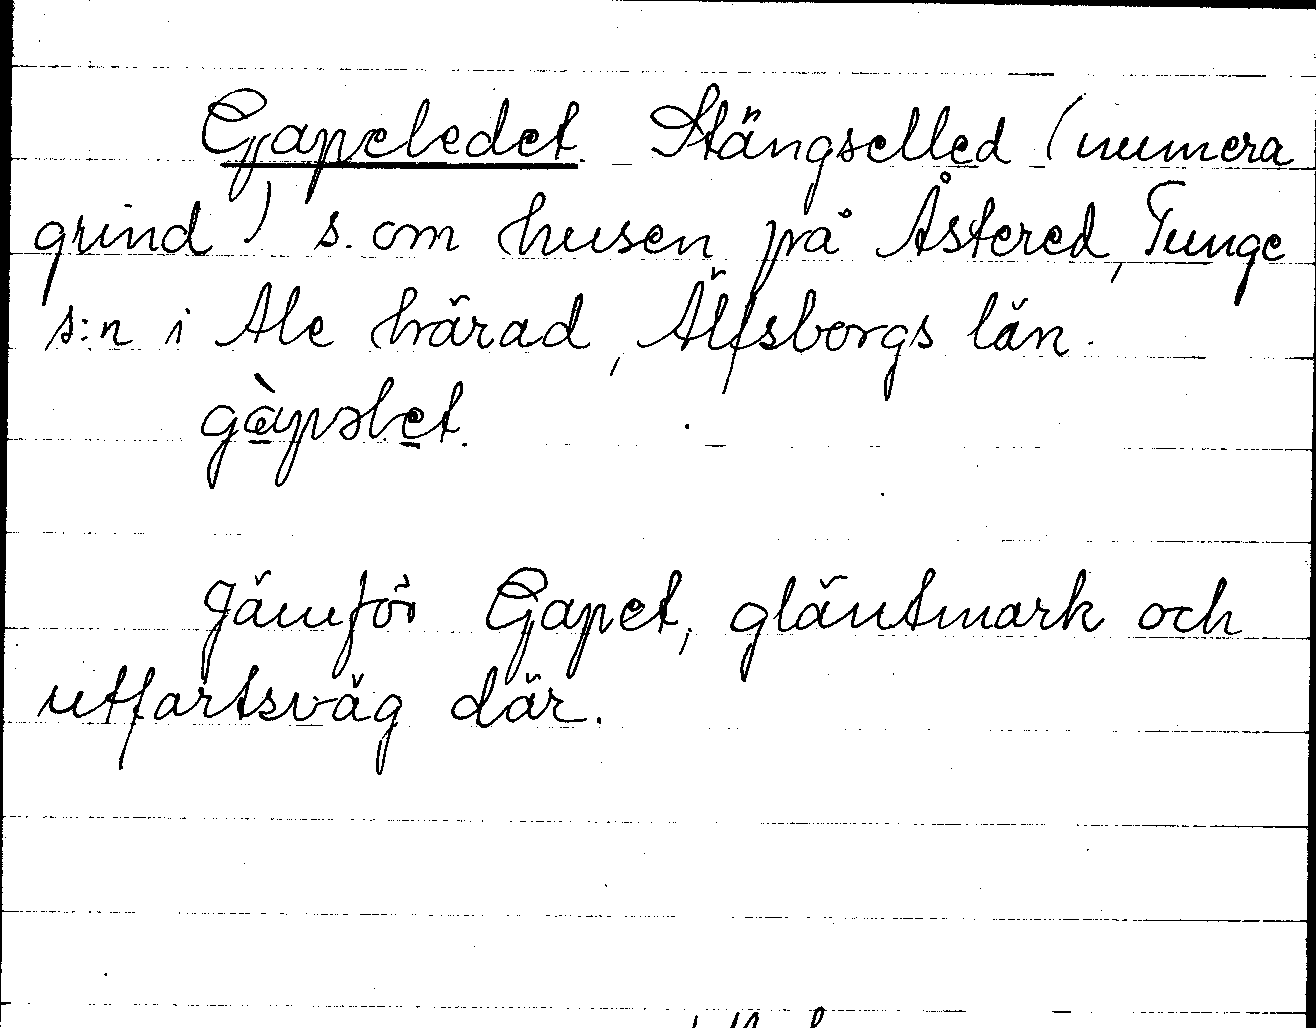 Gapeledet. Stängselled (numera
grind) s. om husen på Åstered, Tunge
s:n i Ale härad, Älfsborgs län.
gàpəlet.
Jämför Gapet, gläntmark och
utfartsväg där.